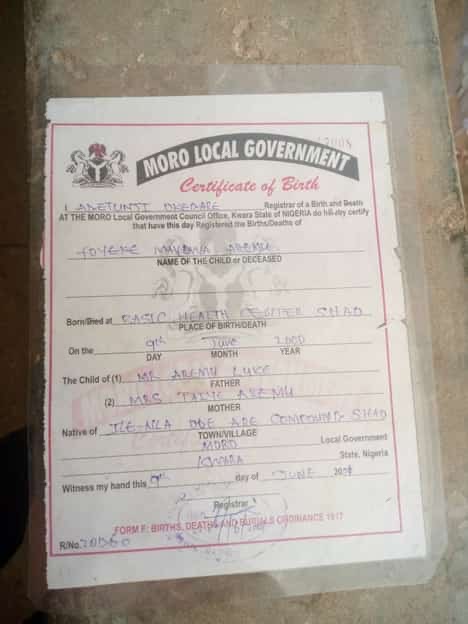 MORO LOCAL GOVERNMENT
Certificate of Birth
I ADETUNJI Registrar of a Birth and Death
AT THE MORO Local Government Council Office, Kwara State of NIGERIA do hereby certify
that have this day Registered the Births/Deaths of
AREMU
NAME OF THE CHILD or DECEASED
Born/Died at BASIC HEALTH CENTER SHAO
PLACE OF BIRTH/DEATH
On the 9th June 2000
DAY MONTH YEAR
The Child of (1) MR AREMU LUKE
FATHER
(2) MRS TAIYE AREMU
MOTHER
Native of ILE-NLA ODE ARE COMPOUND SHAO
TOWN/VILLAGE
MORO Local Government
KWARA State, Nigeria
Witness my hand this 9th day of JUNE
Registrar
FORM F: BIRTHS, DEATHS AND BURIALS ORDINANCE 1917
R/No.